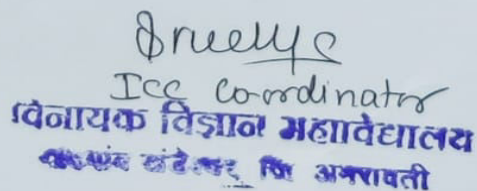 ICC Coordinator
विनायक विज्ञान महाविद्यालय
खंडेश्वर, जि अमरावती